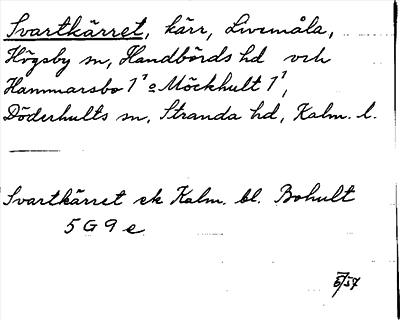 Svartkärret, kärr, Livemåla,
Högsby sn, Handbörds hd och
Hammarsbo 1¹ o Möckhult 1¹,
Döderhults sn, Stranda hd, Kalm. l.
Svartkärret ek Kalm. bl. Bohult
5 G 9 e
/57